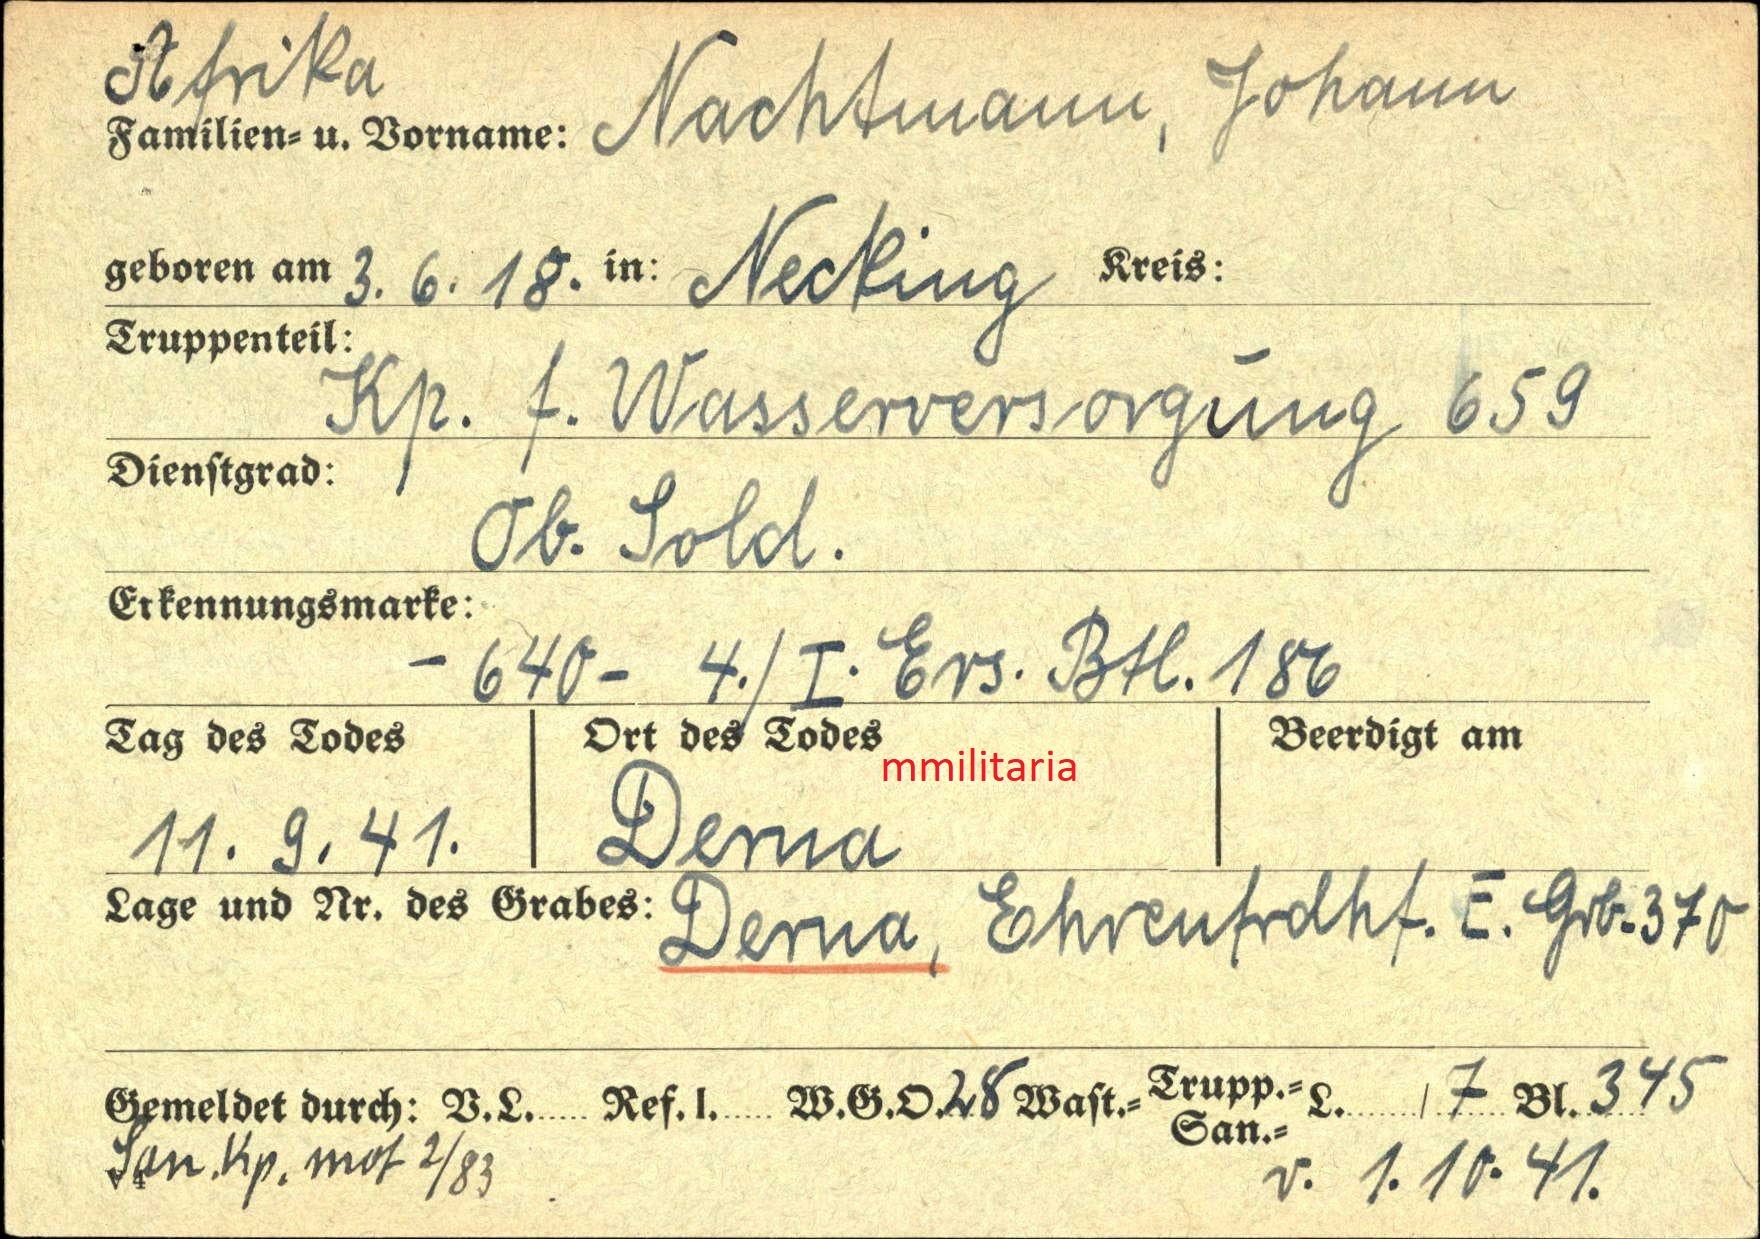 Afrika
Familien- u. Vorname: Nachtmann, Johann
geboren am 3. 6. 18. in: Necking Kreis:
Truppenteil:
Kp. f. Wasserversorgung 659
Dienstgrad:
Ob. Sold.
Erkennungsmarke:
- 640 - 4./I. Ers. Btl. 186
Tag des Todes Ort des Todes Beerdigt am
mmilitaria
11. 9. 41. Derna
Lage und Nr. des Grabes: Derna, Ehrenfrdhf. E. Grb. 370
Gemeldet durch: V.L. ..... Ref. I. ..... W.G.O. 28 Wast.- Trupp.- L. ......../ 7 Bl. 345
San.-
San. Kp. mot 2/83 v. 1. 10. 41.